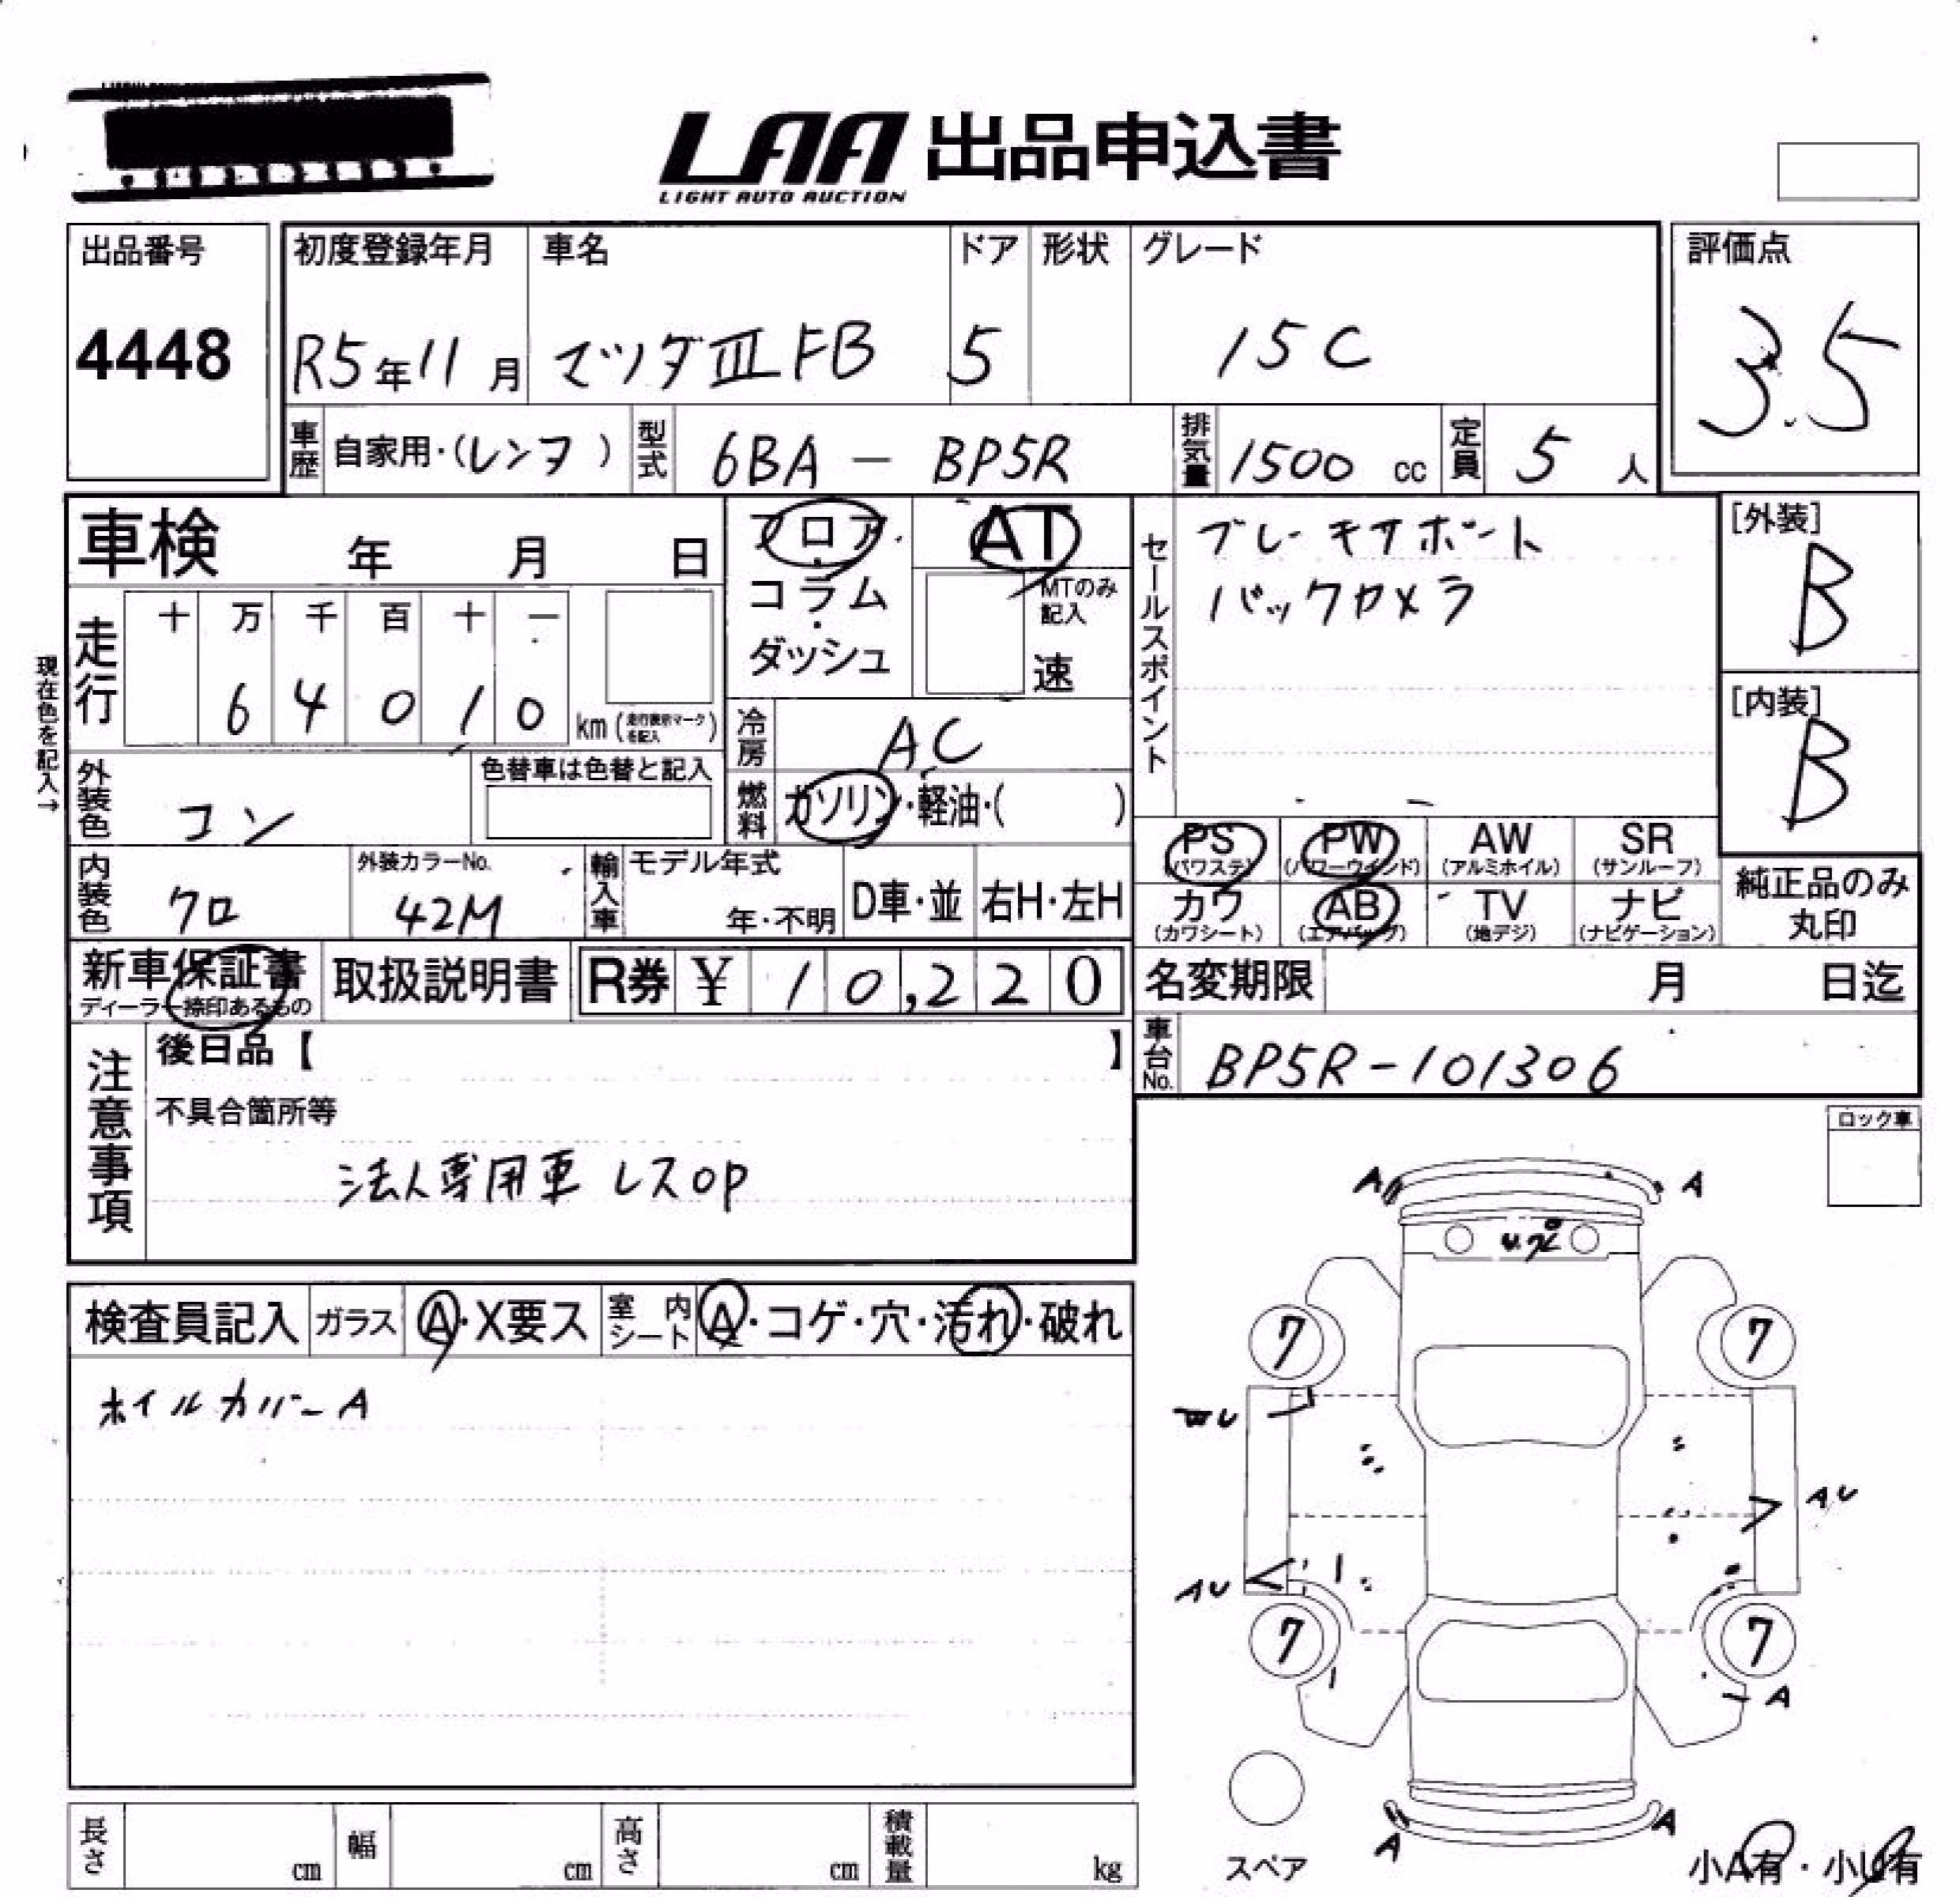 LAA 出品申込書
LIGHT AUTO AUCTION
出品番号
4448
初度登録年月
R5年11月
車名
マツダⅢFB
ドア
5
形状
グレード
15C
評価点
3.5
車歴
自家用・(レンタ)
型式
6BA - BP5R
排気量
1500 cc
定員
5 人
車検 年 月 日
フロア・コラム・ダッシュ
AT
MTのみ記入
速
セールスポイント
ブレーキサポート
バックカメラ
[外装]
B
[内装]
B
現在色を記入→
走行
十 万 千 百 十 一
6 4 0 1 0
km(走行表示マークを記入)
冷房
AC
燃料
ガソリン・軽油・( )
外装色
コン
色替車は色替と記入
内装色
クロ
外装カラーNo.
42M
輸入車
モデル年式
年・不明
D車・並
右H・左H
PS (パワステ)
PW (パワーウインド)
AW (アルミホイル)
SR (サンルーフ)
カワ (カワシート)
AB (エアバッグ)
TV (地デジ)
ナビ (ナビゲーション)
純正品のみ丸印
新車保証書
ディーラー捺印あるもの
取扱説明書
R券 ¥ 10,220
名変期限 月 日迄
車台No.
BP5R-101306
注意事項
後日品【 】
不具合箇所等
法人専用車 レスop
ロック車
検査員記入
ガラス
A・X要ス
室内シート
A・コゲ・穴・汚れ・破れ
ホイルカバーA
A
A
7
7
U
AU
AU
7
7
A
A
A
スペア
小A有・小U有
長さ cm
幅 cm
高さ cm
積載量 kg